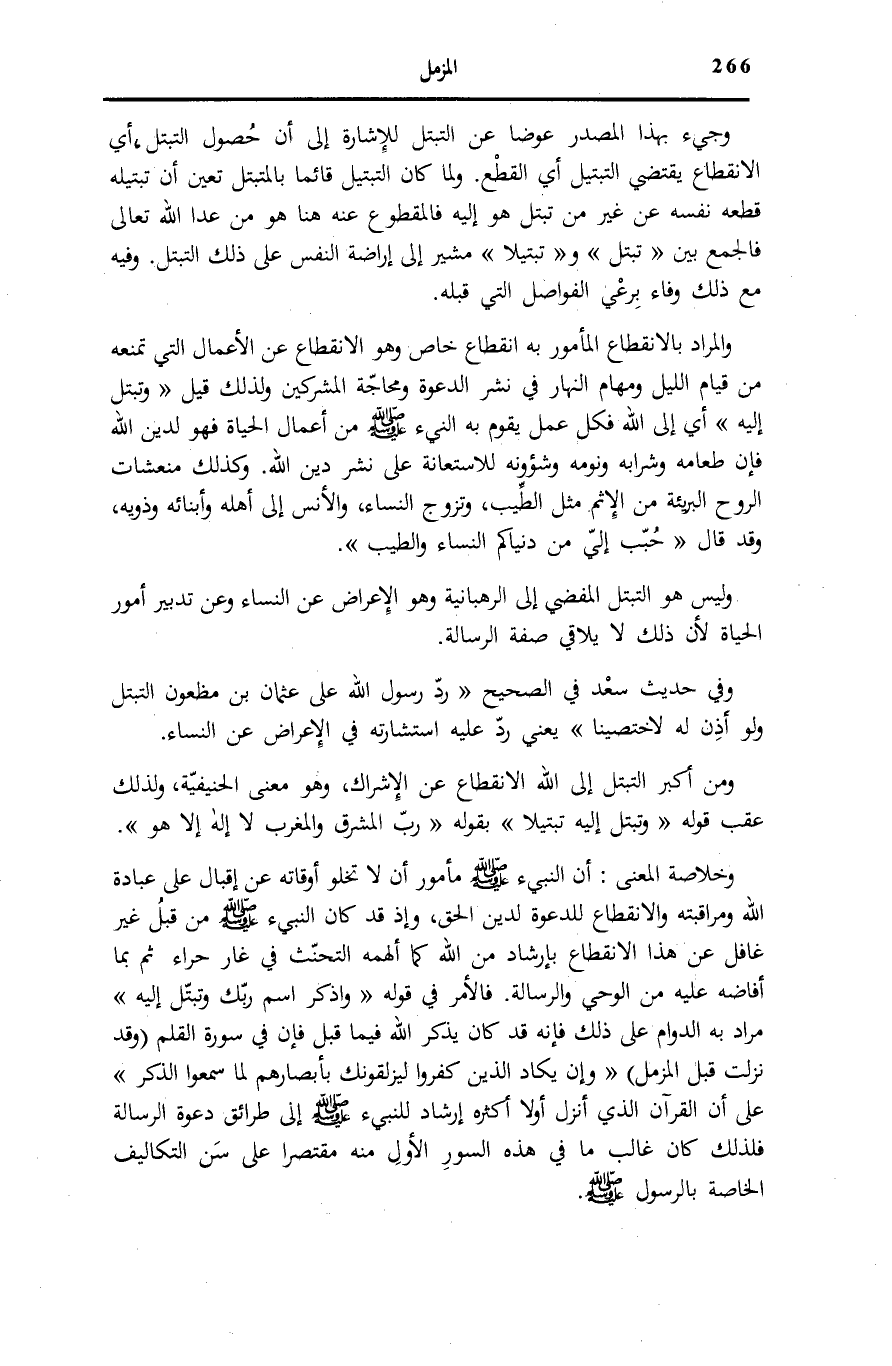 266
المزمل
وجيء بهذا المصدر عوضا عن التبتل للإشارة إلى أن حُصول التبتل ،أي
الانقطاع يقتضي التبتيل أي القطْع. ولما كان التبتيل قائما بالمتبتل تعين أن تبتيله
قطعه نفسه عن غير من تبتل هو إليه فالمقطوع عنه هنا هو من عدا الله تعالى
فالجمع بين « تبتل » و« تبتيلا » مشير إلى إراضة النفس على ذلك التبتل. وفيه
مع ذلك وفاء بِرعْي الفواصل التي قبله.
والمراد بالانقطاع المأمور به انقطاع خاص وهو الانقطاع عن الأعمال التي تمنعه
من قيام الليل ومهام النهار في نشر الدعوة ومحاجّة المشركين ولذلك قيل « وتبتل
إليه » أي إلى الله فكل عمل يقوم به النيء ﷺ من أعمال الحياة فهو لدين الله
فإن طعامه وشرابه ونومه وشؤونه للاستعانة على نشر دين الله. وكذلك منعشات
الروح البريئة من الإثم مثل الطِّيب، وتزوج النساء، والأنس إلى أهله وأبنائه وذويه،
وقد قال « حُبّب إليّ من دنياكم النساء والطيب ».
وليس هو التبتل المفضي إلى الرهبانية وهو الإعراض عن النساء وعن تدبير أمور
الحياة لأن ذلك لا يلاقي صفة الرسالة.
وفي حديث سعْد في الصحيح « ردّ رسول الله على عثمان بن مظعون التبتل
ولو أَذِن له لاختصينا » يعني ردّ عليه استشارته في الإعراض عن النساء.
ومن أكبر التبتل إلى الله الانقطاع عن الإشراك، وهو معنى الحنيفيّة، ولذلك
عقب قوله « وتبتل إليه تبتيلا » بقوله « ربّ المشرق والمغرب لا إلٰه إلا هو ».
وخلاصة المعنى : أن النبيء ﷺ مأمور أن لا تخلو أوقاته عن إقبال على عبادة
الله ومراقبته والانقطاع للدعوة لدين الحق، وإذ قد كان النبيء ﷺ من قبلُ غير
غافل عن هذا الانقطاع بإرشاد من الله كما ألهمه التحنّث في غار حراء ثم بما
أفاضه عليه من الوحي والرسالة. فالأمر في قوله « واذكر اسم ربّك وتبتّل إليه »
مراد به الدوام على ذلك فإنه قد كان يذكر الله فيما قبل فإن في سورة القلم (وقد
نزلت قبل المزمل) « وإن يكاد الذين كفروا ليزلقونك بأبصارهم لما سمعوا الذكر »
على أن القرآن الذي أنزل أولا أكثره إرشاد للنبيء ﷺ إلى طرائق دعوة الرسالة
فلذلك كان غالب ما في هذه السورِ الأولِ منه مقتصرا على سَن التكاليف
الخاصة بالرسول ﷺ.